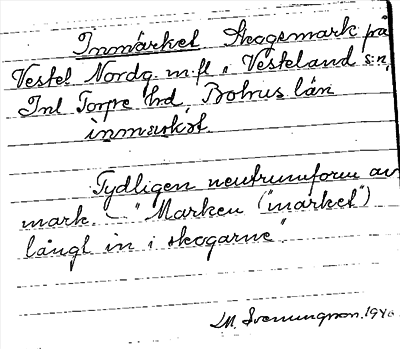 Inmärket Skogsmark på
Vestel Nordg. m.fl., Vesteland s:n,
Inl Torpe hd, Bohus län
inmarköt.
Tydligen neutrumform av
mark. – "Marken ("market")
långt in i skogarne".
LM. Svenungsson. 1946.